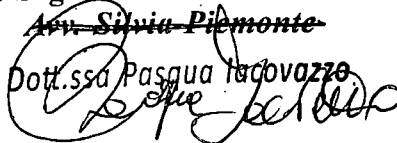 Avv. Silvia Piemonte
Dott.ssa Pasqua Iacovazzo